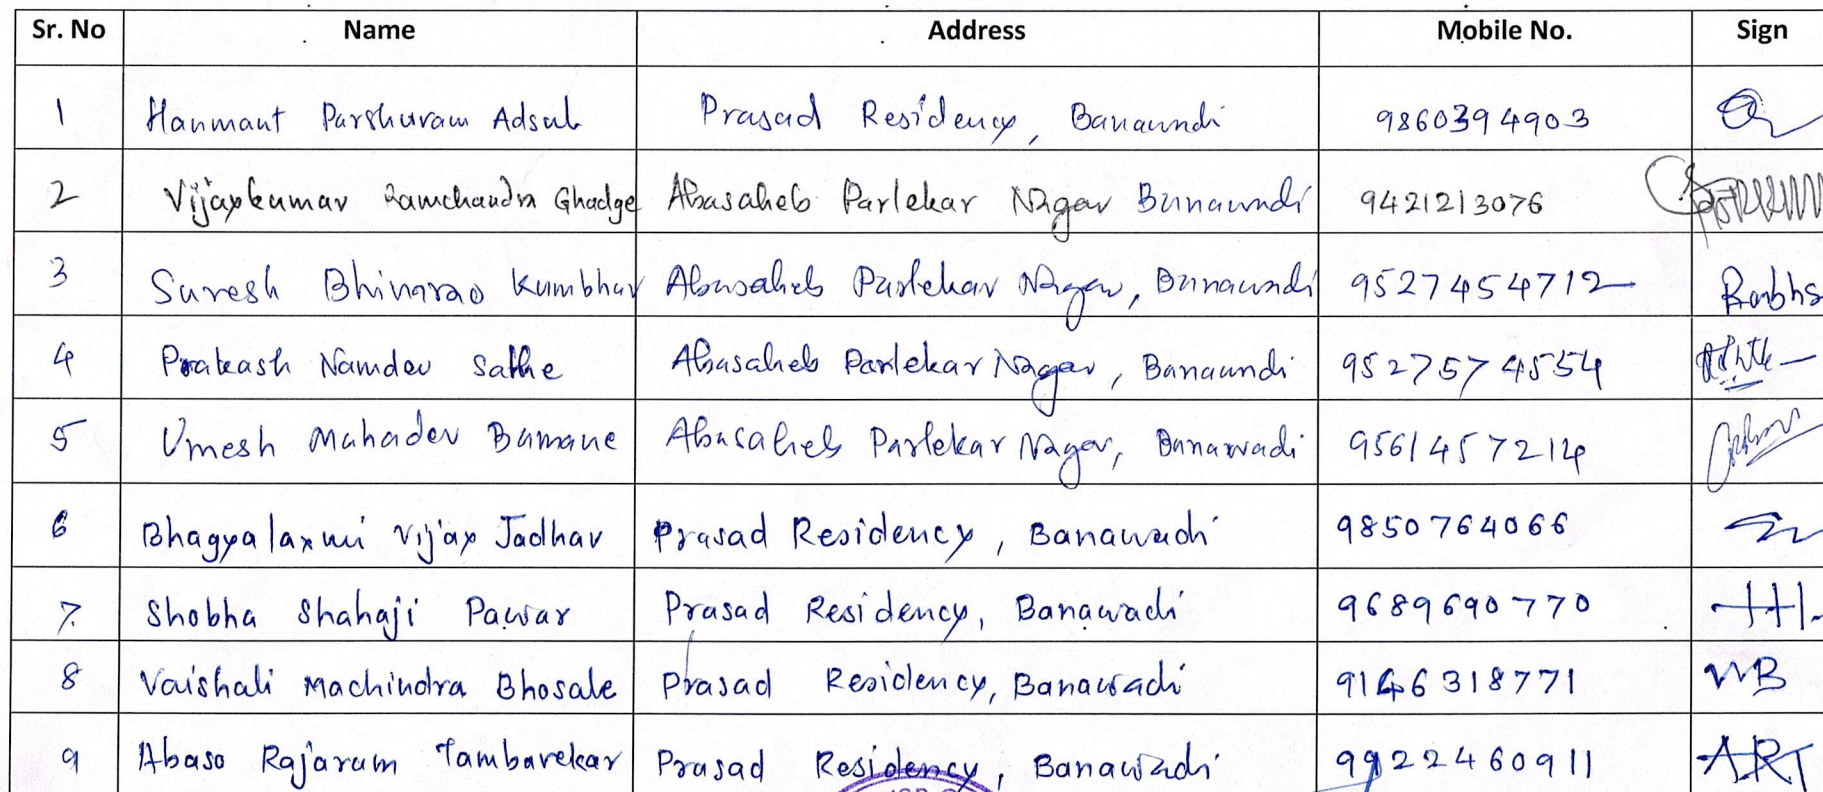 Sr. No Name Address Mobile No. Sign
1 Hanmant Parshuram Adsul Prasad Residency, Banawadi 9860394903
2 Vijaykumar Ramchandra Ghadge Abasaheb Parlekar Nagar Banawadi 9421213076
3 Suresh Bhimrao Kumbhar Abasaheb Parlekar Nagar, Banawadi 9527454712
4 Prakash Namdev Sathe Abasaheb Parlekar Nagar, Banawadi 9527574554
5 Umesh Mahadev Bamane Abasaheb Parlekar Nagar, Banawadi 9561457214
6 Bhagyalaxmi Vijay Jadhav Prasad Residency, Banawadi 9850764066
7. Shobha Shahaji Pawar Prasad Residency, Banawadi 9689690770
8 Vaishali Machindra Bhosale Prasad Residency, Banawadi 9146318771 VMB
9 Abaso Rajaram Tambavekar Prasad Residency, Banawadi 9922460911 ART